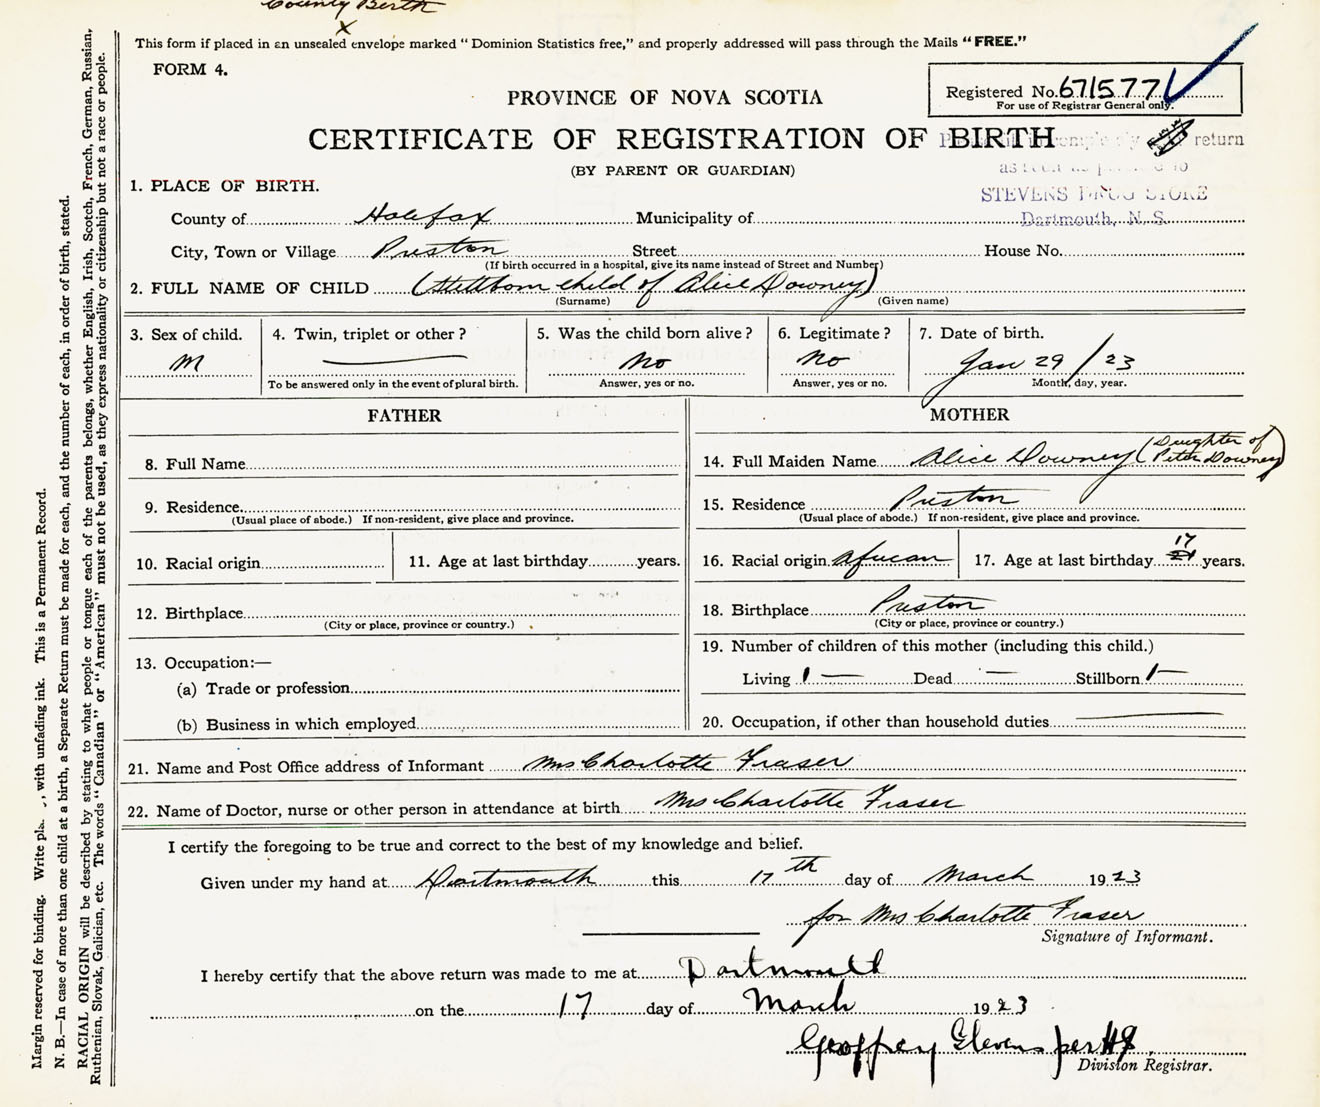 County Birth
X
This form if placed in an unsealed envelope marked “ Dominion Statistics free,” and properly addressed will pass through the Mails “FREE.”
FORM 4.
Registered No. 671577
For use of Registrar General only.
PROVINCE OF NOVA SCOTIA
CERTIFICATE OF REGISTRATION OF BIRTH
return
(BY PARENT OR GUARDIAN)
STEVENS DRUG STORE
Dartmouth, N. S.
1. PLACE OF BIRTH.
County of Halifax Municipality of
City, Town or Village Preston Street House No.
(If birth occurred in a hospital, give its name instead of Street and Number)
2. FULL NAME OF CHILD (Stillborn child of Alice Downey)
(Surname) (Given name)
3. Sex of child. 4. Twin, triplet or other ? 5. Was the child born alive ? 6. Legitimate ? 7. Date of birth.
M — No No Jan 29 / 23
To be answered only in the event of plural birth. Answer, yes or no. Answer, yes or no. Month, day, year.
FATHER
8. Full Name
9. Residence.
(Usual place of abode.) If non-resident, give place and province.
10. Racial origin 11. Age at last birthday years.
12. Birthplace
(City or place, province or country.)
13. Occupation:—
(a) Trade or profession
(b) Business in which employed
MOTHER
14. Full Maiden Name Alice Downey (Daughter of Peter Downey)
15. Residence Preston
(Usual place of abode.) If non-resident, give place and province.
16. Racial origin African 17. Age at last birthday 17 years.
18. Birthplace Preston
(City or place, province or country.)
19. Number of children of this mother (including this child.)
Living 1 — Dead — Stillborn 1 —
20. Occupation, if other than household duties —
21. Name and Post Office address of Informant Mrs Charlotte Fraser
22. Name of Doctor, nurse or other person in attendance at birth Mrs Charlotte Fraser
I certify the foregoing to be true and correct to the best of my knowledge and belief.
Given under my hand at Dartmouth this 17th day of March 1923
for Mrs Charlotte Fraser
Signature of Informant.
I hereby certify that the above return was made to me at Dartmouth
on the 17 day of March 1923
Geoffrey Stevens per HS
Division Registrar.
Margin reserved for binding. Write , with unfading ink. This is a Permanent Record.
N. B.—In case of more than one child at a birth, a Separate Return must be made for each, and the number of each, in order of birth, stated.
RACIAL ORIGIN will be described by stating to what people or tongue each of the parents belongs, whether English, Irish, Scotch, French, German, Russian,
Ruthenian, Slovak, Galician, etc. The words “ Canadian ” or “ American ” must not be used, as they express nationality or citizenship but not a race or people.